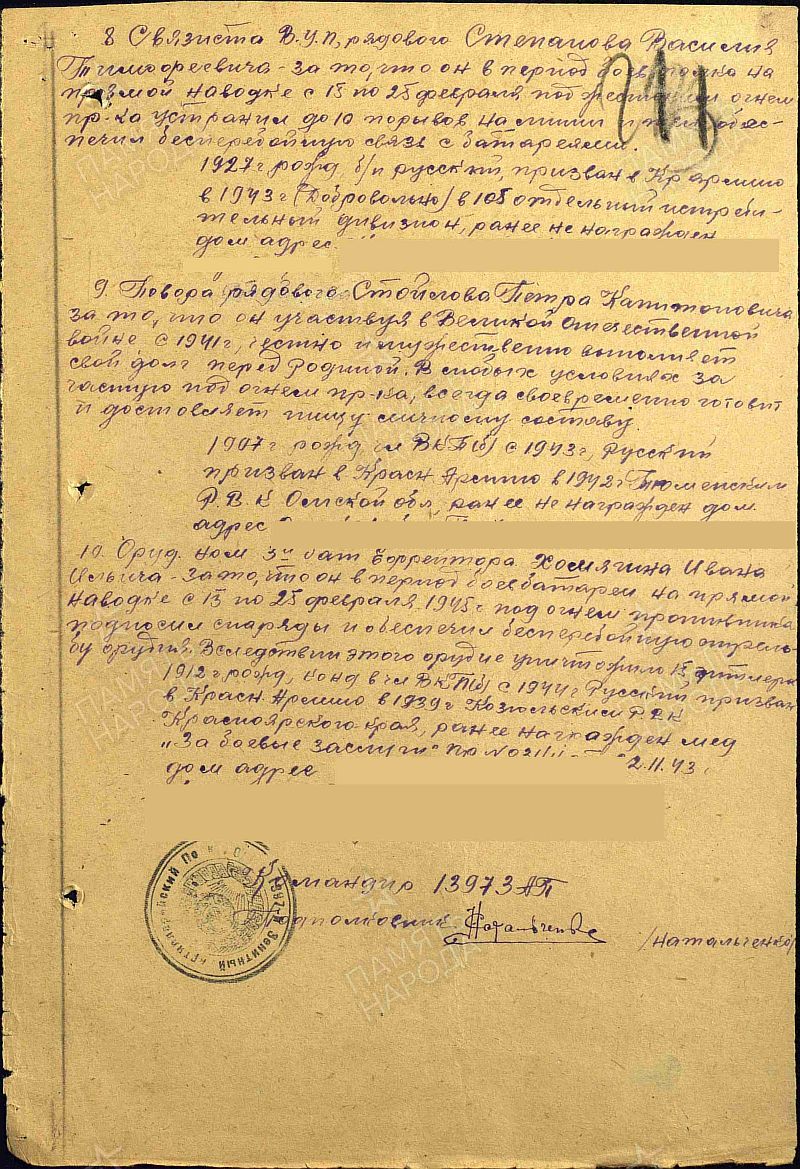 8 Связиста В.У.П, рядового Степанова Василия
Тимофеевича - за то, что он в период боев полка на
прямой наводке с 15 по 25 февраля под жестоким огнем
пр-ка устранил до 10 порывов на линии и тем обес-
печил бесперебойную связь с батареями.
1927 г рожд, б/п русский, призван в Кр армию
в 1943 г (Добровольно) в 108 отдельный истреби-
тельный дивизион, ранее не награжден
дом адрес
9. Повора рядового Стойлова Петра Капитоновича
за то, что он участвуя в Великой Отечественной
войне с 1941 г, честно и мужественно выполняет
свой долг перед Родиной. В любых условиях за
частую под огнем пр-ка, всегда своевременно готовит
и доставляет пищу личному составу.
1907 г рожд чл ВКП(б) с 1943 г, Русский
призван в Красн Армию в 1942 г Тюменским
Р.В.К Омской обл, ранее не награжден дом
адрес
10. Оруд. ном 3й бат Ефрейтора Хомягина Ивана
Ильича - за то, что он в период боев батареи на прямой
наводке с 15 по 25 февраля 1945 г под огнем противника
подносил снаряды и обеспечил бесперебойную стрель-
бу орудия. Вследствии этого орудие уничтожило
1912 г рожд, канд в чл ВКП(б) с 1944 г Русский призван
в Красн Армию в 1939 г Козюльским Р.В.К
Красноярского края, ранее награжден мед
„За боевые заслуги" Пр No 2.11.43.
дом адрес
Командир 1397 ЗАП
Подполковник Натальченко /Натальченко/
1397-й Зенитный Артиллерийский
ПАМЯТЬ НАРОДА